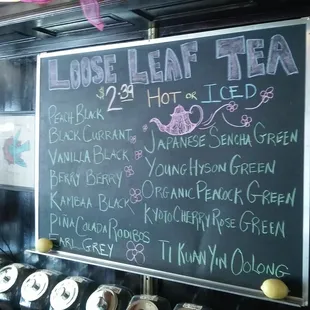 LOOSE LEAF TEA
$2.39 HOT OR ICED
PEACH BLACK
BLACK CURRANT
VANILLA BLACK
BERRY BERRY
BLACK
PIÑA COLADA ROOIBOS
EARL GREY
JAPANESE SENCHA GREEN
YOUNG HYSON GREEN
ORGANIC PEACOCK GREEN
KYOTO CHERRY ROSE GREEN
TI KUAN YIN OOLONG